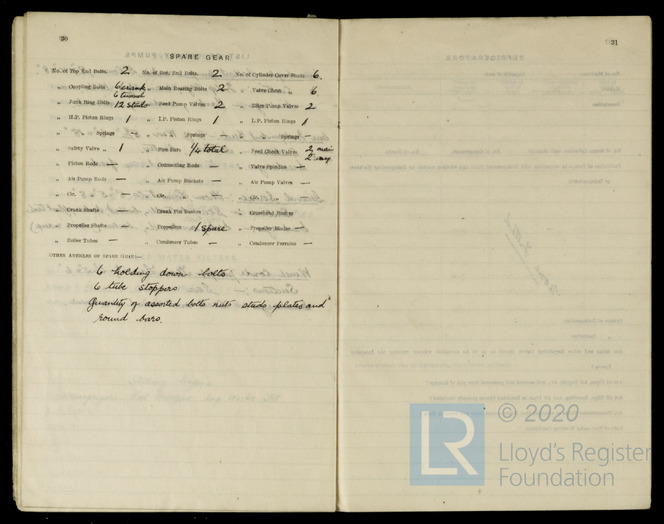 20
SPARE GEAR
No. of Top End Bolts. 2 No. of Bot. End Bolts. 2 No. of Cylinder Cover Studs 6.
„ Coupling Bolts 6 crank 6 tunnel „ Main Bearing Bolts 2 „ Valve Chest „ 6
„ Junk Ring Bolts 12 studs „ Feed Pump Valves 2 „ Bilge Pump Valves 2
„ H.P. Piston Rings 1 „ I.P. Piston Rings 1 „ L.P. Piston Rings 1
„ „ Springs „ „ Springs „ „ Springs –
„ Safety Valve „ 1 „ Fire Bars ¼ total „ Feed Check Valves 2 main 2
„ Piston Rods — „ Connecting Rods — „ Valve Spindles —
„ Air Pump Rods — „ Air Pump Buckets — „ Air Pump Valves —
„ Cir. „ „ Cir. „ „ Cir. „
„ Crank Shafts — „ Crank Pin Bushes „ Crosshead Bushes
„ Propeller Shafts — „ Propellers 1 spare „ Propeller Blades —
„ Boiler Tubes — „ Condenser Tubes — „ Condenser Ferrules —
OTHER ARTICLES OF SPARE GEAR:—
6 holding down bolts
6 tube stoppers
Quantity of assorted bolts nuts studs plates and
round bars.
21
© 2020
LR Lloyd's Register
Foundation